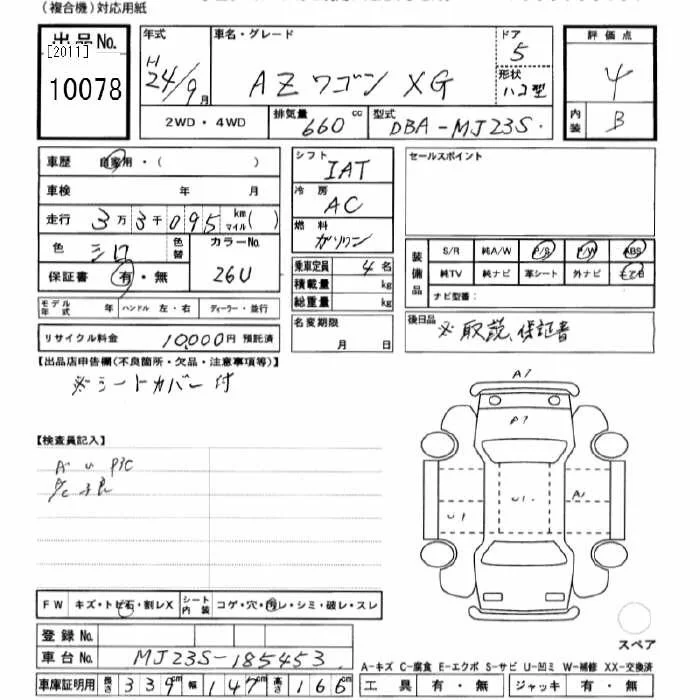 (複合機)対応用紙
出品No. [2011] 10078
年式 H24/9月
車名・グレード AZワゴン XG
ドア 5
形状 ハコ型
評価点 4
内装 B
2WD・4WD
排気量 660cc
型式 DBA-MJ23S
車歴 自家用・( )
車検 年 月
走行 3万3千095km マイル( )
色 シロ 色替 カラーNo. 26U
保証書 有・無
モデル年式 年 ハンドル 左・右 ディーラー・並行
リサイクル料金 10,000円 預託済
シフト IAT
冷房 AC
燃料 ガソリン
乗車定員 4名
積載量 kg
総重量 kg
名変期限 月 日
セールスポイント
装備品 S/R 純A/W P/S P/W ABS
純TV 純ナビ 革シート 外ナビ
ナビ型番:
後日品 ※取説、保証書
【出品店申告欄(不良箇所・欠品・注意事項等)】
※シートカバー付
【検査員記入】
A U P3C
A1
P7
U1
U1
A1
FW キズ・トビ石・割レX シート内装 コゲ・穴・汚レ・シミ・破レ・スレ
登録No.
車台No. MJ23S-185453
車庫証明用 長さ 339 幅 147 高さ 166cm
スペア
A-キズ C-腐食 E-エクボ S-サビ U-凹ミ W-補修 XX-交換済
工具 有・無 ジャッキ 有・無